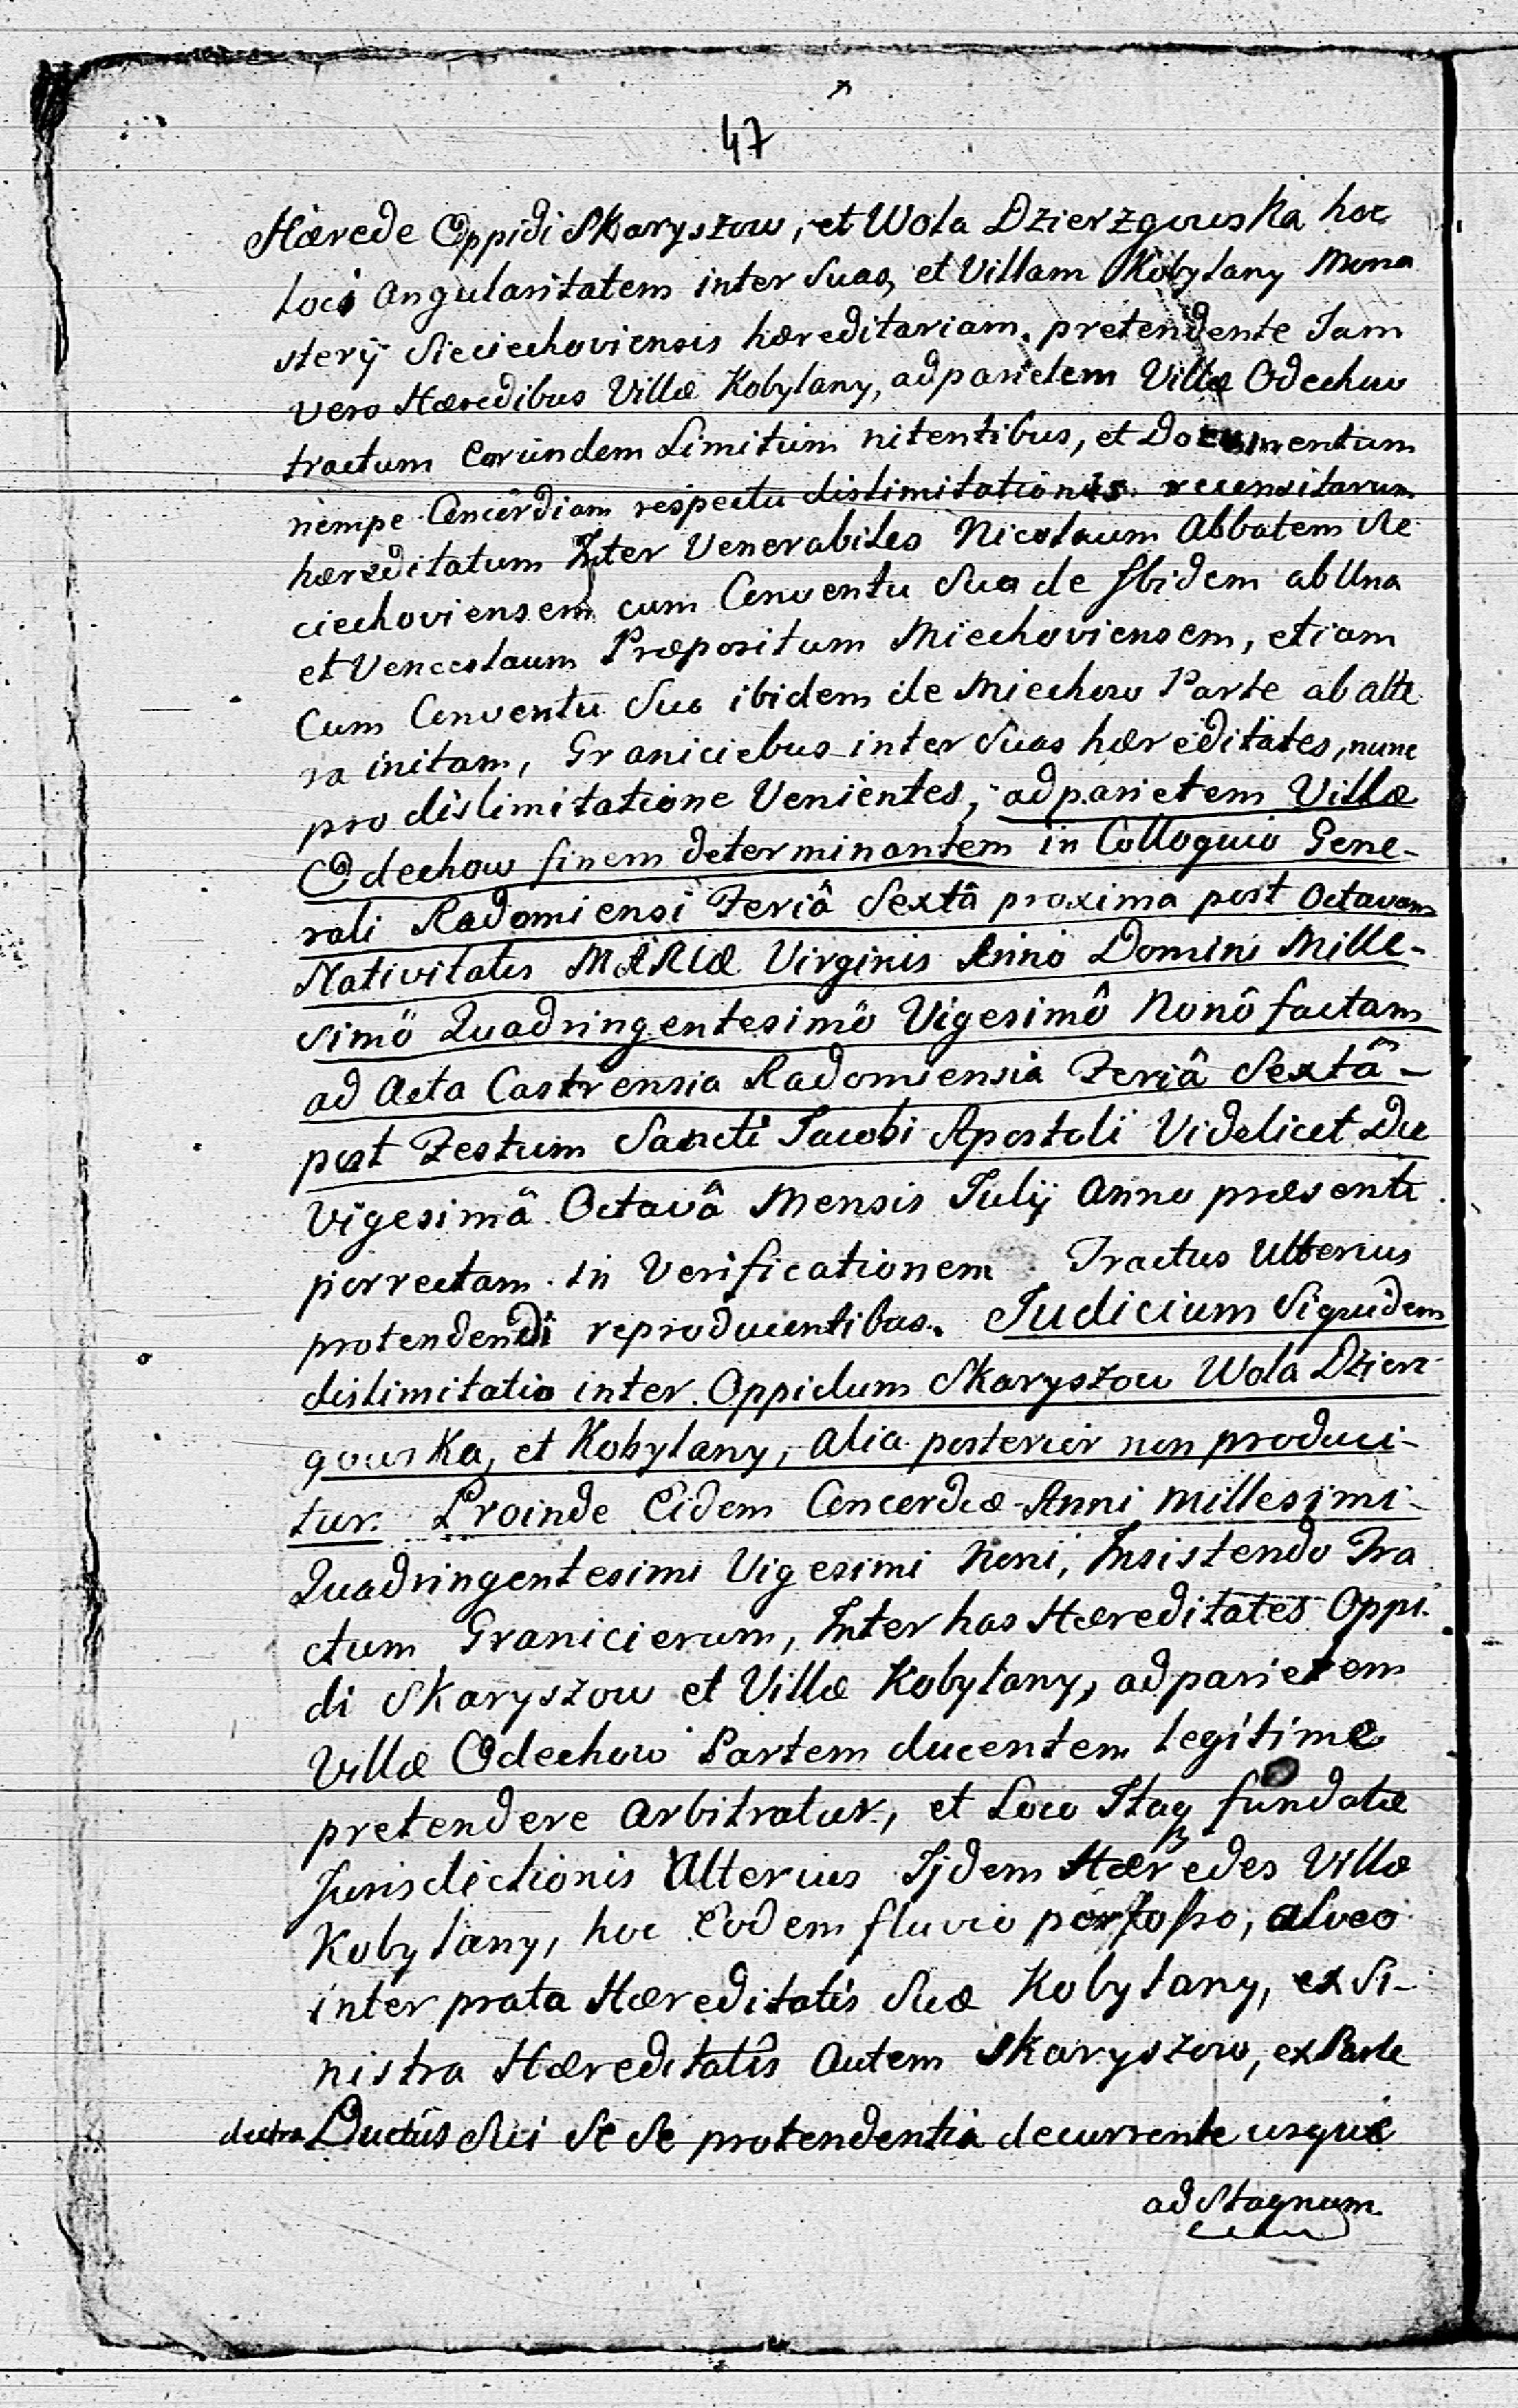 47
Hærede Oppidi Skaryszow, et Wola Dzierzgowska hoc
loci Angularitatem inter Suas, et Villam Kobylany Mona
sterÿ Sieciechoviensis hæreditariam, pretendente Iam
vero Hæredibus Villæ Kobylany, ad parietem Villæ Odechow
tractum Eorundem Limitum nitentibus, et Documentum
nempe Concordiam respectu dislimitationis recensitarum
hæreditatum Inter Venerabiles Nicolaum Abbatem Sie
ciechoviensem cum Conventu Suo de Ibidem ab Una
et Venceslaum Præpositum Miechoviensem, etiam
Cum Conventu Suo ibidem de Miechow Parte ab alte
ra initam, Graniciebus inter Suas hæreditates, nunc
pro dislimitatione Venientes, ad parietem Villæ
Odechow finem determinantem in Colloquio Gene-
rali Radomiensi Feriâ Sextâ proxima post Octavam
Nativitatis MARIÆ Virginis Anno Domini Mille-
simô Quadringentesimô Vigesimô Nonô factam
ad Acta Castrensia Radomiensia Feriâ Sextâ -
post Festum Sancti Iacobi Apostoli Videlicet Die
Vigesimâ Octavâ Mensis Iulÿ Anno præsenti
porrectam in Verificationem Tractus Ulterius
protendendi reproducentibus. Iudicium Siquidem
dislimitatio inter Oppidum Skaryszow Wola Dzierz-
gowska, et Kobylany, alia posterior non produci-
tur. Proinde Eidem Concordiæ Anni Millesimi-
Quadringentesimi Vigesimi Noni, Insistendo Tra
ctum Granicierum, Inter has Hæreditates Oppi-
di Skaryszow et Villæ Kobylany, ad parietem
Villæ Odechow Partem ducentem legitime
pretendere arbitratur, et Loco Itaq fundatæ
Jurisdictionis Ulterius Iidem Hæredes Villæ
Kobylany, hoc Eodem fluvio perfosso, alveo
inter prata Hæreditatis Suæ Kobylany, ex Si-
nistra Hæreditatis Autem Skaryszow, ex Parte
dextra Ductus Sui Se Se protendentia decurrente usque
ad Stagnum.